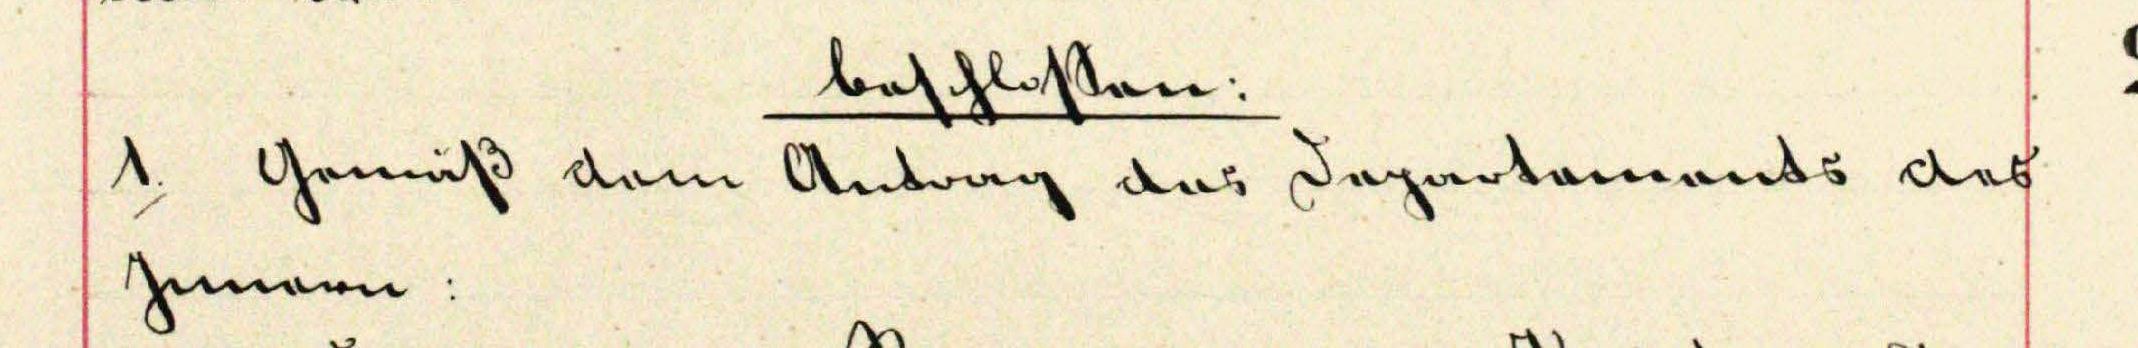 beschlossen:
1. Gemäß dem Antrag des Departements des
Innern: